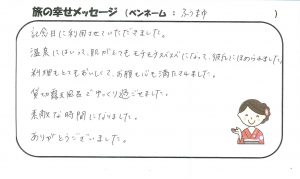 旅の幸せメッセージ ( ペンネーム : ふうまゆ )
記念日に利用させていただきました。
温泉にはいって、肌がとてもモチモチスベスベになって、彼氏にほめられました。
料理もとてもおいしくて、お腹も心も満たされました。
貸切露天風呂でゆっくり過ごせました。
素敵な時間になりました。
ありがとうございました。